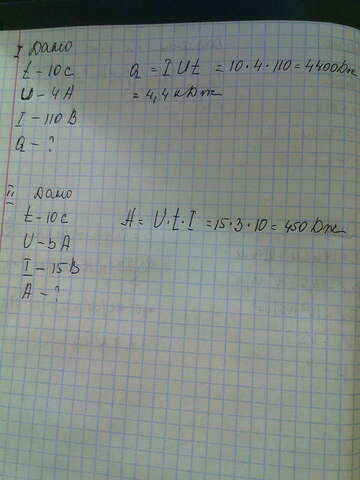 I Дано
t - 10 с
U - 4 А
I - 110 В
Q - ?
Q = I U t = 10 · 4 · 110 = 4400 Дж
= 4,4 кДж
II Дано
t - 10 с
U - 3 А
I - 15 В
A - ?
A = U · t · I = 15 · 3 · 10 = 450 Дж